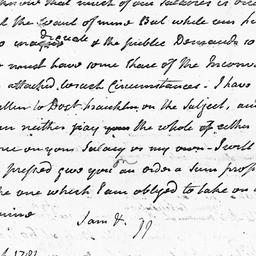 that much of our
the want of mine But while our
decade & the publick Demands
must have some share of the Inconv
attached to such Circumstances. I have
to Doct. franklin on the Subject, and
neither pay the whole of either
on your Salary or my own. I will
prefsed give you an order a sum prop
one which I am obliged to take on
mine
I am &. JJ
1781